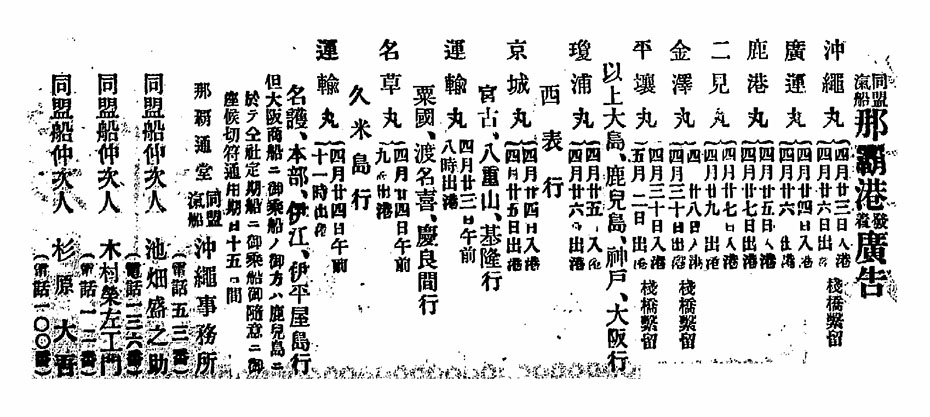 同盟汽船那覇港發着廣告
沖繩丸
四月廿三日入港
四月廿六日出港
棧橋繫留
廣運丸
四月廿
四月廿六
鹿港丸
四月廿五日
四月廿七日出港
二見丸
四月廿七日入港
四月廿九
金澤丸
四月三十日出港
棧橋繫留
平壤丸
四月三十日入港
五月二日出港
棧橋繫留
以上大島、鹿兒島、神戶、大阪行
瓊浦丸
四月廿五 入港
四月廿六 出港
西表行
京城丸
四月廿四日入港
四月廿五日出港
宮古、八重山、基隆行
運輸丸
四月廿三日午前
八時出港
粟國、渡名喜、慶良間行
名草丸
四月廿四日午前
九 出港
久米島行
運輸丸
四月廿四日午前
十一時出港
名護、本部、伊江、伊平屋島行
但大阪商船ニ御乘船ノ御方ハ鹿兒島ニ
於テ仝社定期船ニ御乘船御隨意ニ御
座候切符通用期日十五日間
那覇通堂 同盟汽船 沖繩事務所
(電話五三番)
同盟船仲次人 池畑盛之助
(電話一三六番)
同盟船仲次人 木村榮左工門
(電話一二番)
同盟船仲次人 杉原大吾
(電話一〇〇番)